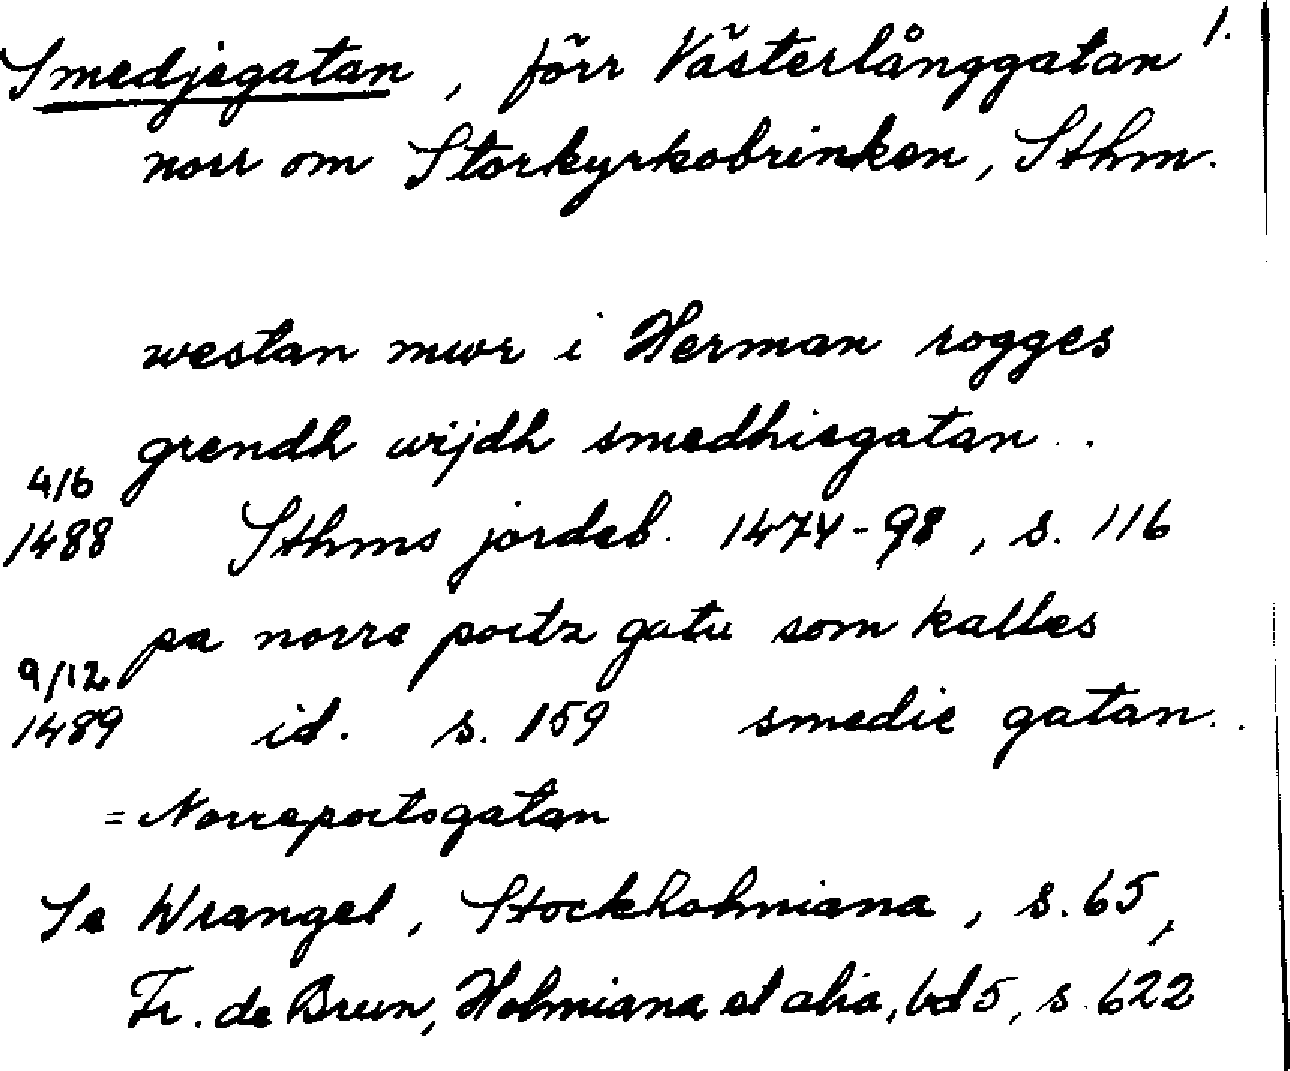 Smedjegatan, förr Västerlånggatan 1.
norr om Storkyrkobrinken, Sthm.
westan mwr i Herman rogges
grendh wijdh smedhiegatan..
4/6
1488 Sthms jordeb. 1474-98, s. 116
pa norre portz gatu som kalles
9/12
1489 id. s. 159 smedie gatan..
= Norreportsgatan
Se Wrangel, Stockholmiana, s. 65,
Fr. de Brun, Holmiana et alia, bd 5, s. 622